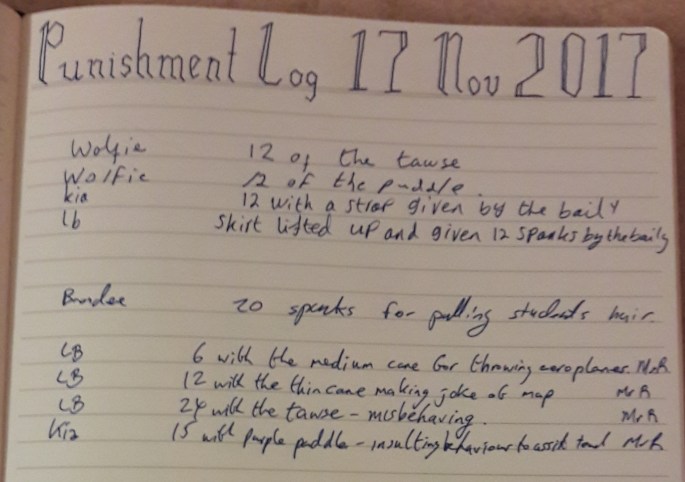 Punishment Log 17 Nov 2017
Wolfie 12 of the tawse
Wolfie 12 of the puddle.
kia 12 with a strap given by the baily
lb Skirt lifted up and given 12 spanks by the baily
20 spanks for pulling students hair.
LB 6 with the medium cane for throwing aeroplanes. Mr R
LB 12 with the thin cane making joke of map Mr R
LB 24 with the tawse - misbehaving. Mr R
Kia 15 with purple paddle - insulting behaviour to assist Mr R